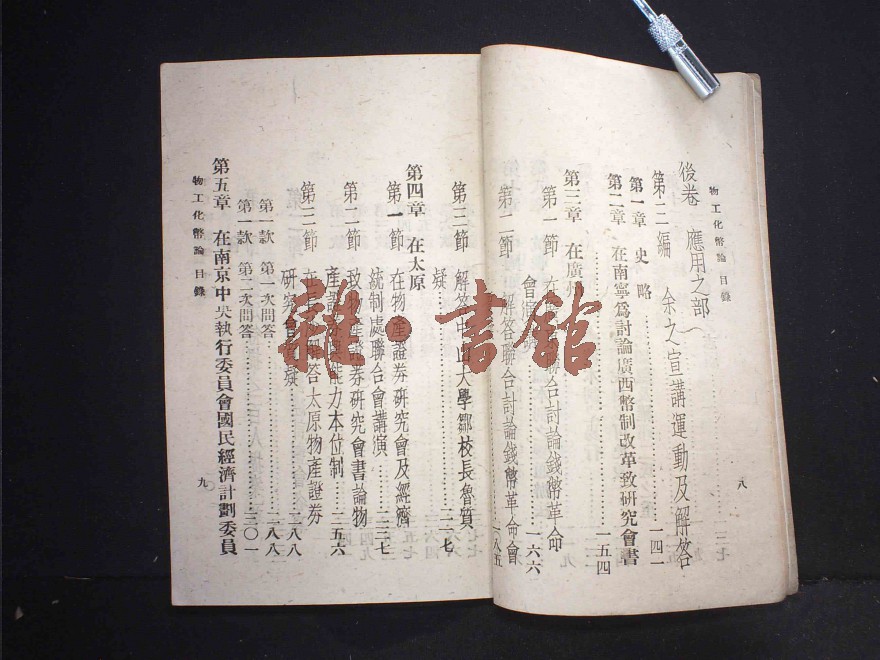 物工化幣論 目錄
八
後卷 應用之部
第二編 余之宣講運動及解答
第一章 史略……一四一
第二章 在南寧爲討論廣西幣制改革致研究會書
……一五四
第三章 在廣州
第一節 在 聯合討論錢幣革命
會演……一六六
第二節 解答聯合討論錢幣革命會
……一八五
第三節 解答中山大學鄒校長魯質
疑……二二七
第四章 在太原
第一節 在物產證券研究會及經濟
統制處聯合會講演……二三七
第二節 致物產證券研究會書論物
產證 與能力本位制……二五六
第三節 在 解答太原物產證券
研究會質疑……二八八
第一款 第一次問答……二八八
第二款 第二次問答……三〇一
第五章 在南京中央執行委員會國民經濟計劃委員
物工化幣論 目錄
九
雜·書館